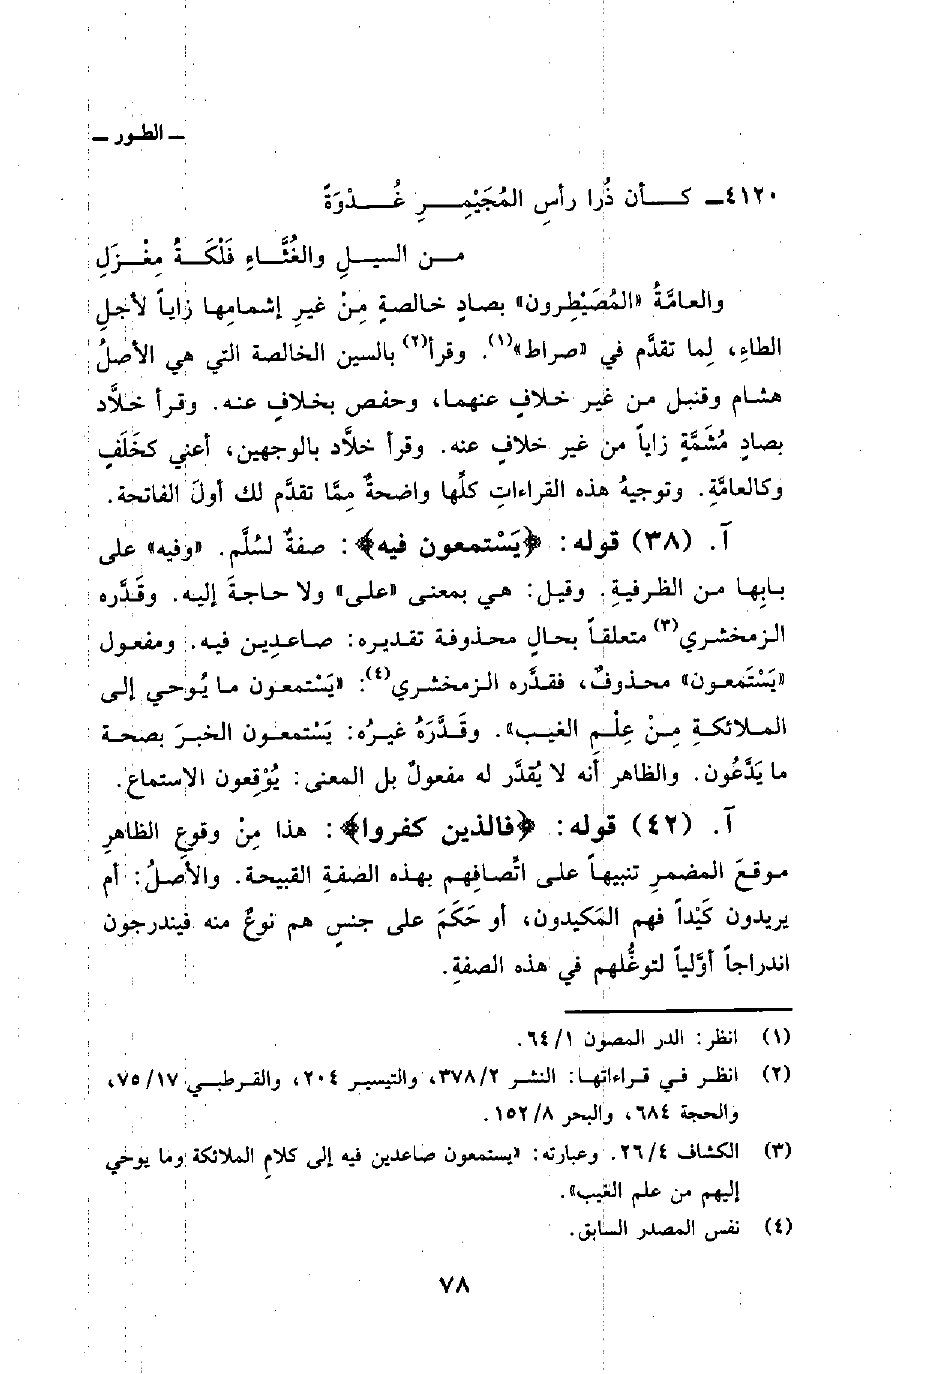 ـ الطور ـ
٤١٢٠ـ كـأن ذُرا رأسِ المُجَيْمِـرِ غُـدْوَةً
مـن السيـلِ والغُثَّـاءِ فَلْكَـةُ مِغْـزَلِ
والعامَّةُ «المُصَيْطِرون» بصادٍ خالصةٍ مِنْ غيرِ إشمامِها زاياً لأجلِ
الطاءِ، لِما تقدَّم في «صراط»(١). وقرأ(٢) بالسين الخالصة التي هي الأصلُ
هشام وقنبل من غير خلافٍ عنهما، وحفص بخلافٍ عنه. وقرأ خلاَّد
بصادٍ مُشَمَّةٍ زاياً من غير خلافٍ عنه. وقرأ خلاَّد بالوجهين، أعني كخَلَفٍ
وكالعامَّةِ. وتوجيهُ هذه القراءاتِ كلِّها واضحةٌ مِمَّا تقدَّم لك أولَ الفاتحة.
آ. (٣٨) قوله: ﴿يَسْتمعون فيه﴾: صفةٌ لسُلَّم. «وفيه» على
بابِها من الظرفيةِ. وقيل: هي بمعنى «على» ولا حاجةَ إليه. وقَدَّره
الزمخشري(٣) متعلقاً بحالٍ محذوفة تقديره: صاعدِين فيه. ومفعول
«يَسْتَمعون» محذوفٌ، فقدَّره الزمخشري(٤): «يَسْتمعون ما يُوحي إلى
الملائكةِ مِنْ عِلْمِ الغيب». وقَدَّرَهُ غيرُه: يَسْتمعون الخبرَ بصحة
ما يَدَّعُون. والظاهر أنه لا يُقدَّر له مفعولٌ بل المعنى: يُوْقِعون الاستماع.
آ. (٤٢) قوله: ﴿فالذين كفروا﴾: هذا مِنْ وقوعِ الظاهرِ
موقعَ المضمرِ تنبيهاً على اتِّصافِهم بهذه الصفةِ القبيحة. والأصلُ: أم
يريدون كَيْداً فهم المَكيدون، أو حَكَمَ على جنسٍ هم نوعٌ منه فيندرجون
اندراجاً أوَّلياً لتوغُّلهم في هذه الصفةِ.
(١) انظر: الدر المصون ٦٤/١.
(٢) انظر في قراءاتها: النشر ٣٧٨/٢، والتيسير ٢٠٤، والقرطبي ٧٥/١٧،
والحجة ٦٨٤، والبحر ١٥٢/٨.
(٣) الكشاف ٢٦/٤. وعبارته: «يستمعون صاعدين فيه إلى كلامِ الملائكة وما يوحي
إليهم من علم الغيب».
(٤) نفس المصدر السابق.
٧٨